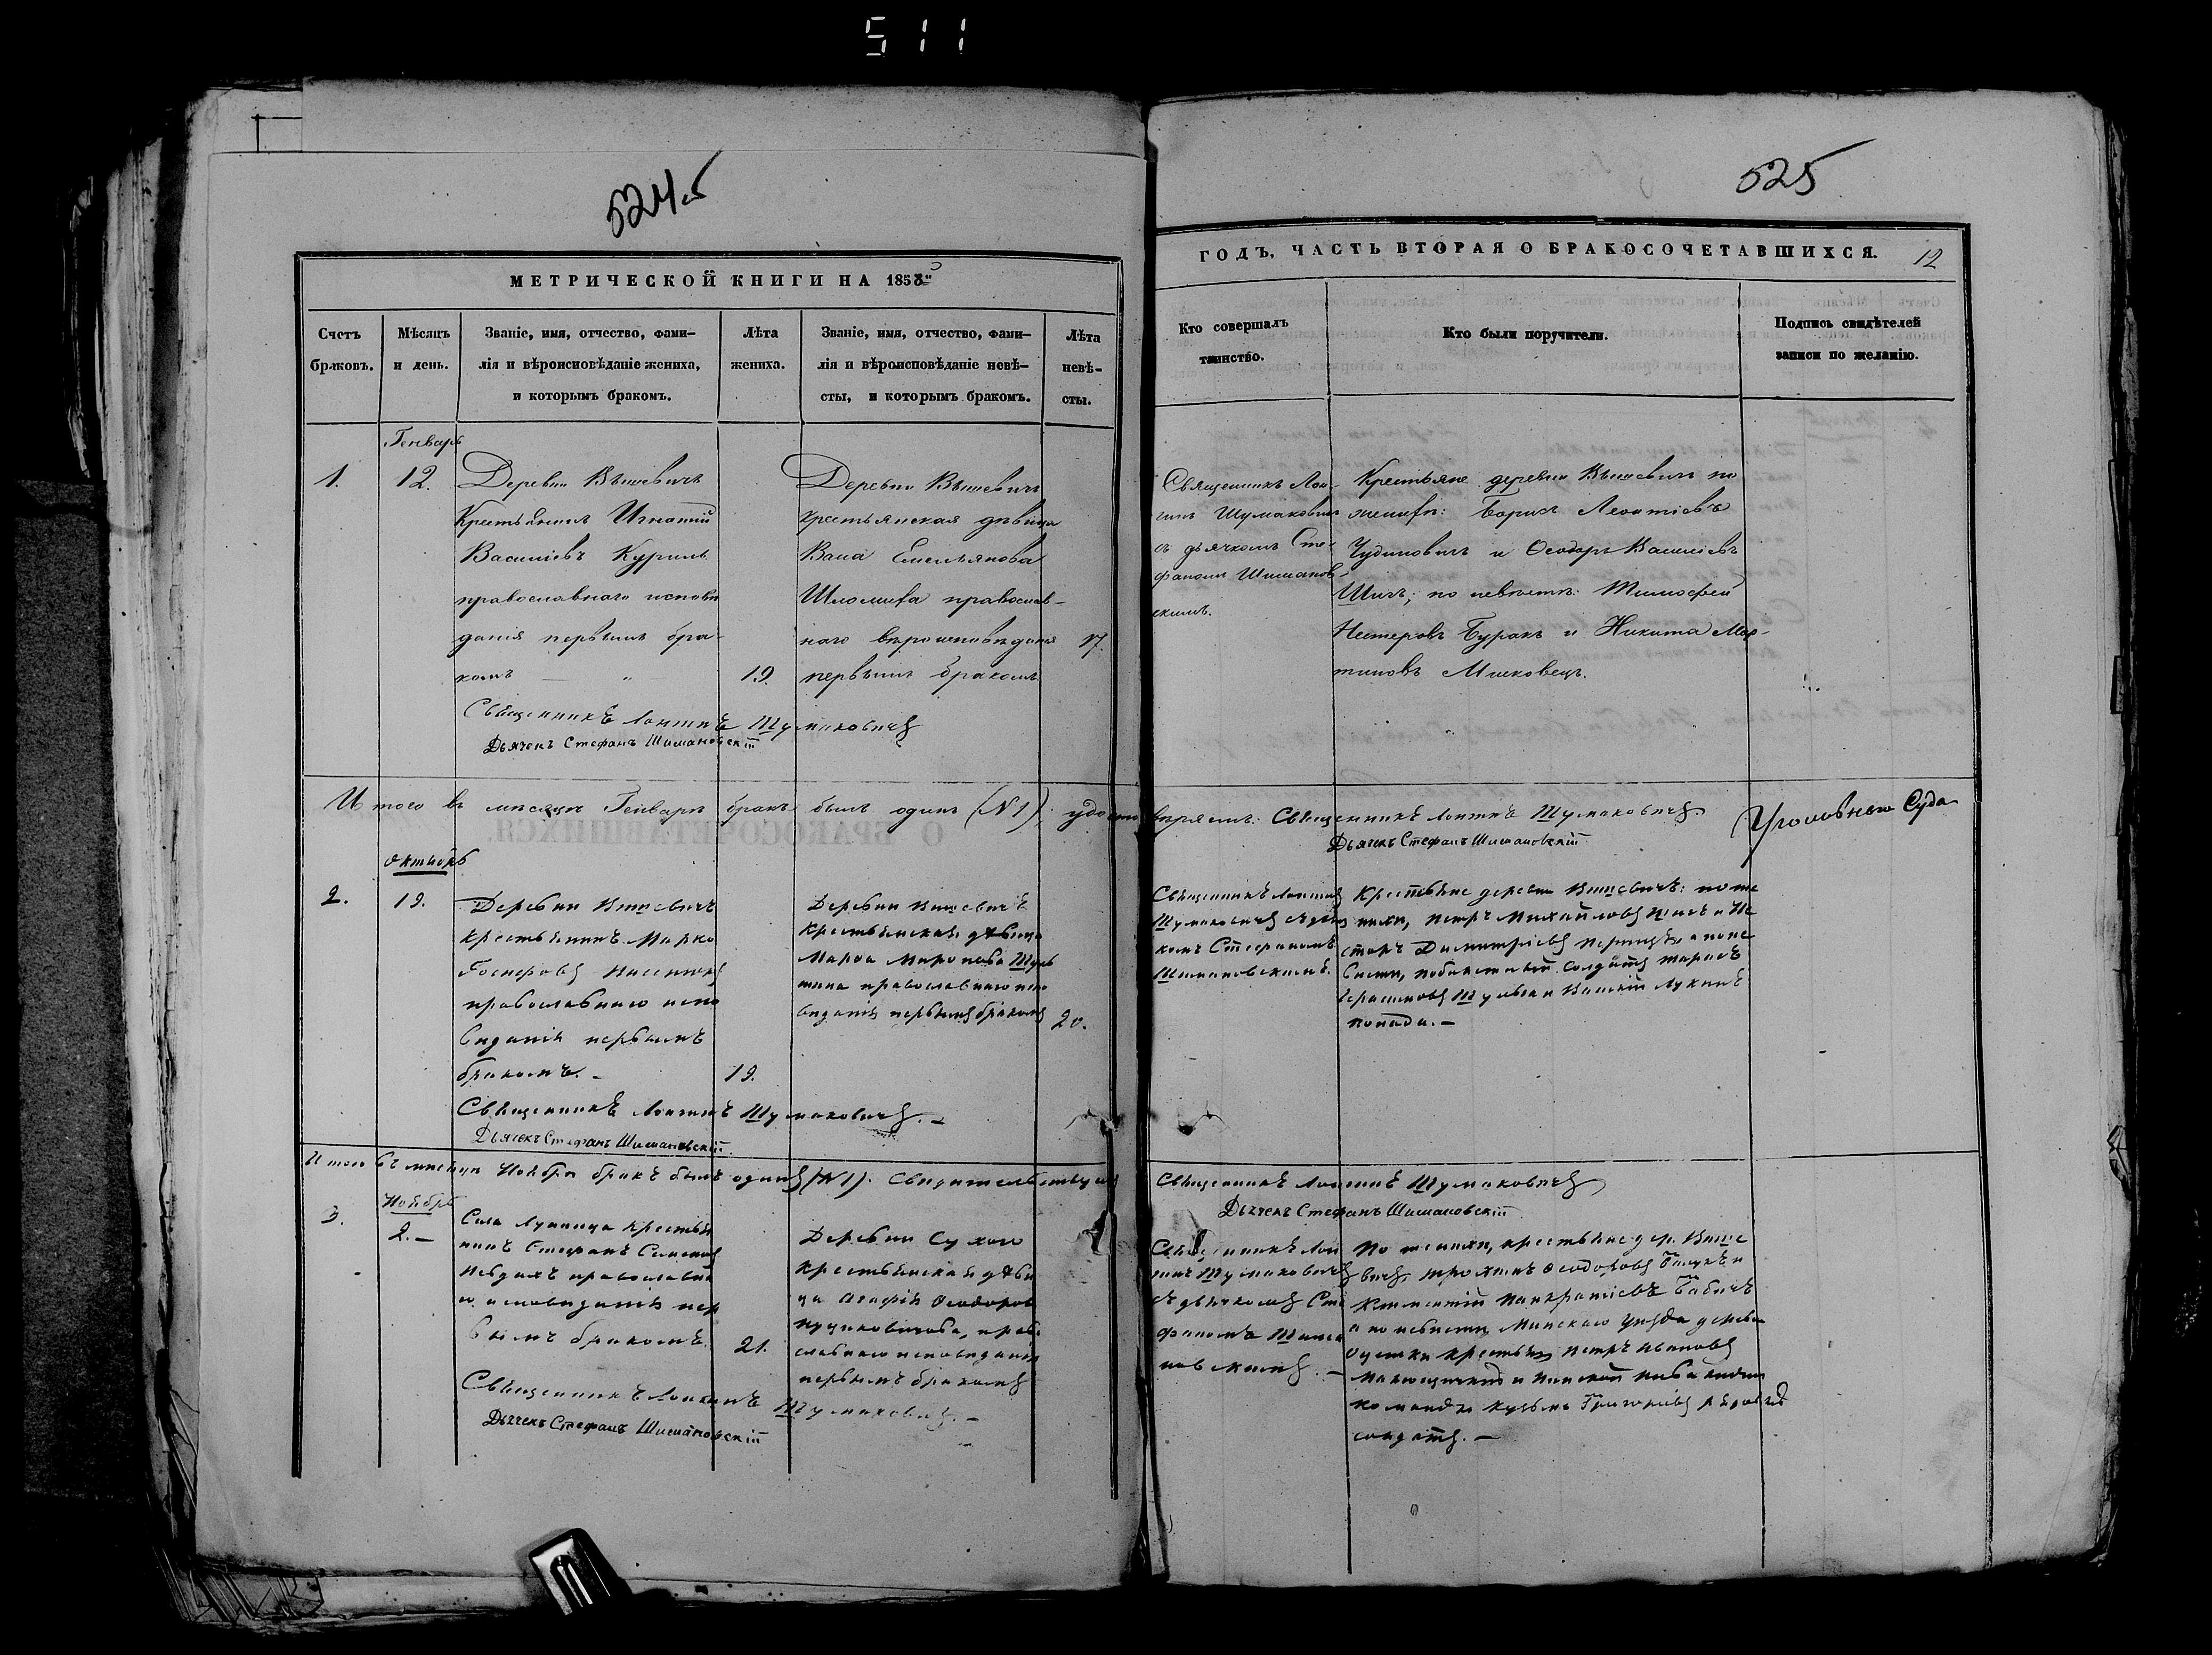 511
524 об
525
МЕТРИЧЕСКОЙ КНИГИ НА 1853
ГОДЪ, ЧАСТЬ ВТОРАЯ О БРАКОСОЧЕТАВШИХСЯ.
12
Счетъ
браковъ.
Мѣсяцъ
и день.
Званіе, имя, отчество, фами-
лія и вѣроисповѣданіе жениха,
и которымъ бракомъ.
Лѣта
жениха.
Званіе, имя, отчество, фами-
лія и вѣроисповѣданіе невѣ-
сты, и которымъ бракомъ.
Лѣта
невѣ-
сты.
Кто совершалъ
таинство.
Кто были поручители.
Подпись свидѣтелей
записи по желанію.
Генварь
1.
12.
Деревни Вешевичъ
Крестьянинъ Игнатій
Василіевъ Куриль
православнаго исповѣ
данія первымъ бра-
комъ
19.
Деревни Вешевичъ
крестьянская дѣвица
Емельянова
православ-
наго вѣроисповѣданія
первымъ бракомъ
17.
Священникъ Лон-
гинъ Шумаковичъ
съ дьячкомъ Сте-
фаномъ Шиманов-
скимъ.
Крестьяне деревни Вешевичъ по
женихѣ: Борисъ Леонтіевъ
Чудиновичъ и Ѳеодоръ Василіевъ
Шичъ; по невѣстѣ: Тимофей
Нестеровъ Буракъ и Никита Мар-
тиновъ Мисковецъ.
Священникъ Лонгинъ Шумаковичъ
Дьячекъ Стефанъ Шимановскій
Итого въ мѣсяцѣ Генварѣ бракъ былъ одинъ (№ 1) удостовѣряемъ: Священникъ Лонгинъ Шумаковичъ
Дьячекъ Стефанъ Шимановскій
Уголовнаго Суда
Октябрь
2.
19.
Деревни Вишевичъ
крестьянинъ Марко
Іосифовъ
православнаго испо
вѣданія первымъ
бракомъ.
19.
Деревни Вишевичъ
Крестьянская дѣвица
Марѳа Миронова
православнаго испо
вѣданія первымъ бракомъ
20.
Священникъ Лонгинъ
Шумаковичъ съ дьяч
комъ Стефаномъ
Шимановскимъ.
Крестьяне деревни Вишевичъ: по же
нихѣ, Петръ Михайловъ Шичъ и Не
сторъ Димитріевъ а по не
вѣстѣ, солдатъ Тарасъ
Герасимовъ и Лукинъ
Священникъ Лонгинъ Шумаковичъ.
Дьячекъ Стефанъ Шимановскій
Итого въ мѣсяцѣ Ноябрѣ бракъ былъ одинъ (№ 1). Свидѣтельствуемъ
Священникъ Лонгинъ Шумаковичъ
Дьячекъ Стефанъ Шимановскій
Ноябрь
3.
2.
Села Лунинца крестья
нинъ Стефанъ
православна
го исповѣданія пер
вымъ бракомъ.
21.
Деревни Сухого
Крестьянская дѣви
ца Агафія Ѳеодорова
право
славнаго исповѣданія
первымъ бракомъ
Священникъ Лон
гинъ Шумаковичъ
съ дьячкомъ Сте
фаномъ Шима
новскимъ.
По женихѣ, крестьяне дер. Више
вичъ, Ѳеодоровъ и
Климентій Панкратіевъ Бабичъ
а по невѣстѣ, Минскаго уѣзда деревни
крестьян. Петръ Ивановъ
и
команды Кузьма Григоріевъ
солдатъ.
Священникъ Лонгинъ Шумаковичъ.
Дьячекъ Стефанъ Шимановскій